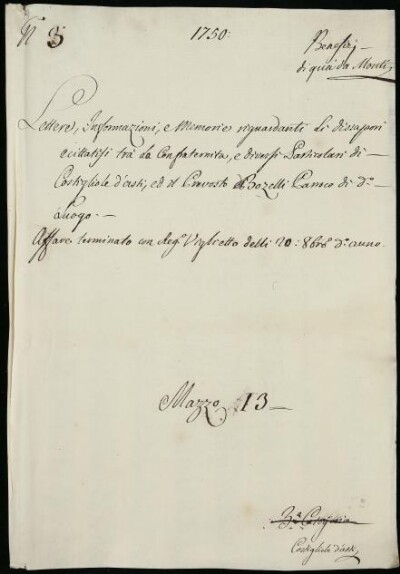 N 3
1750:
Benefizj
di quà da Monti
Lettere, Informazioni, e Memorie riguardanti li dissapori
eccitatisi trà la Confraternita, e diversi Particolari di
Costigliole d'asti, ed il Prevosto Bozelli Paroco di d.º
Luogo.
Affare terminato con Reg.º Viglietto delli 20: 8bre d.º anno.
Mazzo 13
3.a Categoria
Costigliole d'asti